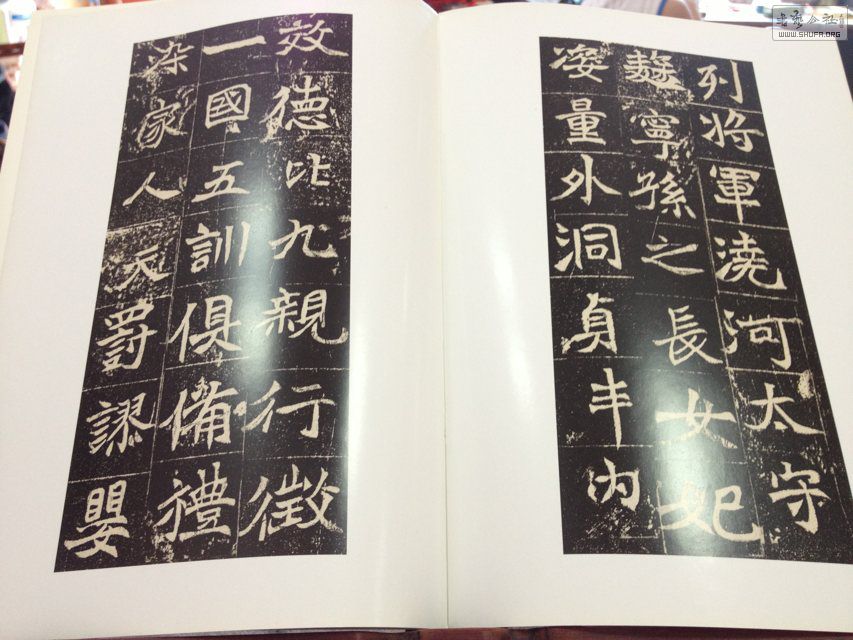 列將軍澆河太守
麴寧孫之長女妃
姿量外洞貞丰内
效德比九親行徵
一國五訓俱備禮
染家人天爵謬嬰
書藝公社
WWW.SHUFA.ORG